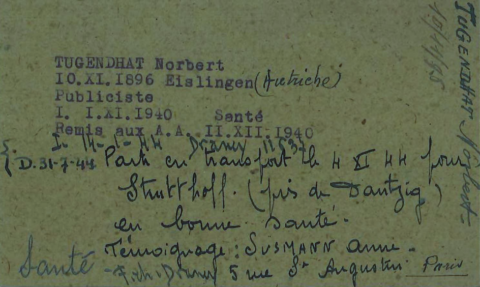 TUGENDHAT Norbert
10.XI.1896 Eislingen (Autriche)
Publiciste
I. I.XI.1940 Santé
Remis aux A.A. II.XII.1940
I. 14-7-44 Drancy
D. 31-7-44 Parti en transport le 4 XI 44 pour
Strutthoff. (près de Dantzig)
en bonne santé.
Témoignage: SUSMANN Anne -
Santé - Fich. Drancy 5 rue St Augustin Paris
TUGENDHAT Norbert